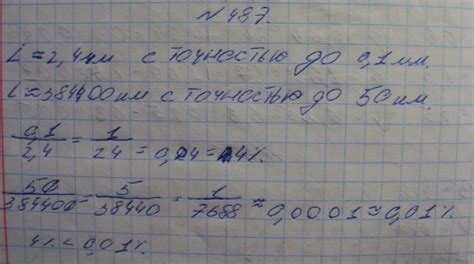 №487.
L=2,4мм с точностью до 0,1мм.
L≈384400км с точностью до 50км.
0,1/2,4=1/24=0,04=4%.
50/384400=5/38440=1/7688≈0,0001≈0,01%.
4%<0,01%.